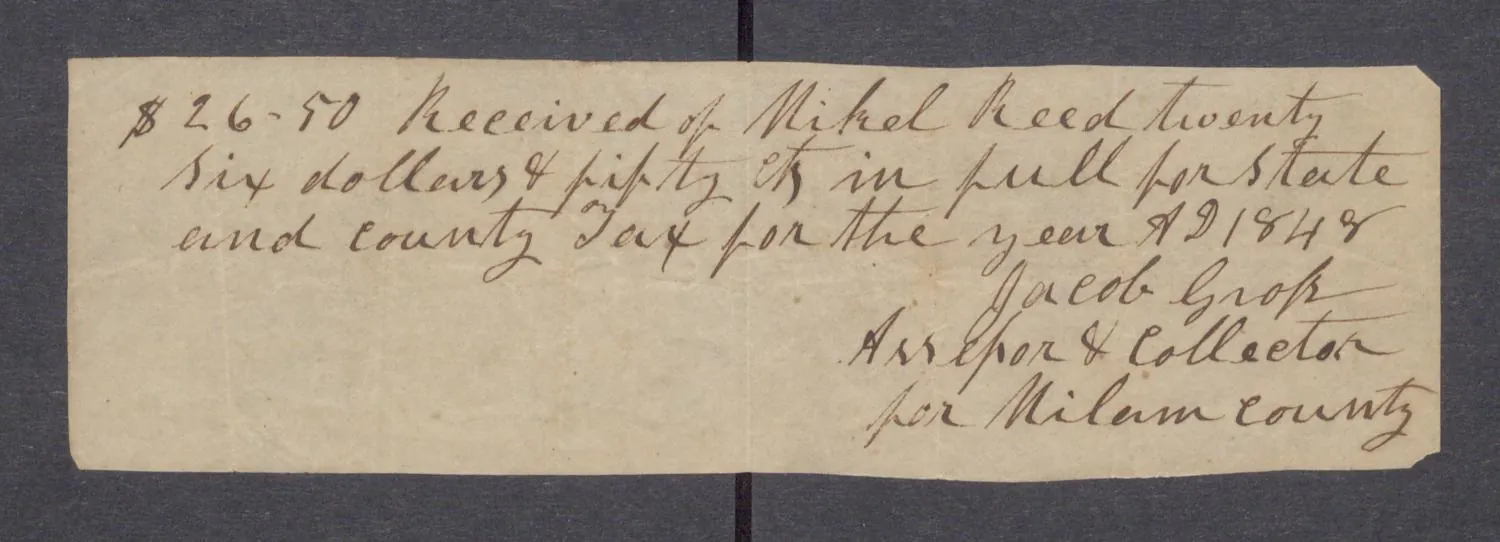 $26-50 Received of Mikel Reed twenty
six dollars & fifty cts in full for state
and county Tax for the year AD 1848
Jacob Gross
Assessor & Collector
for Milam county